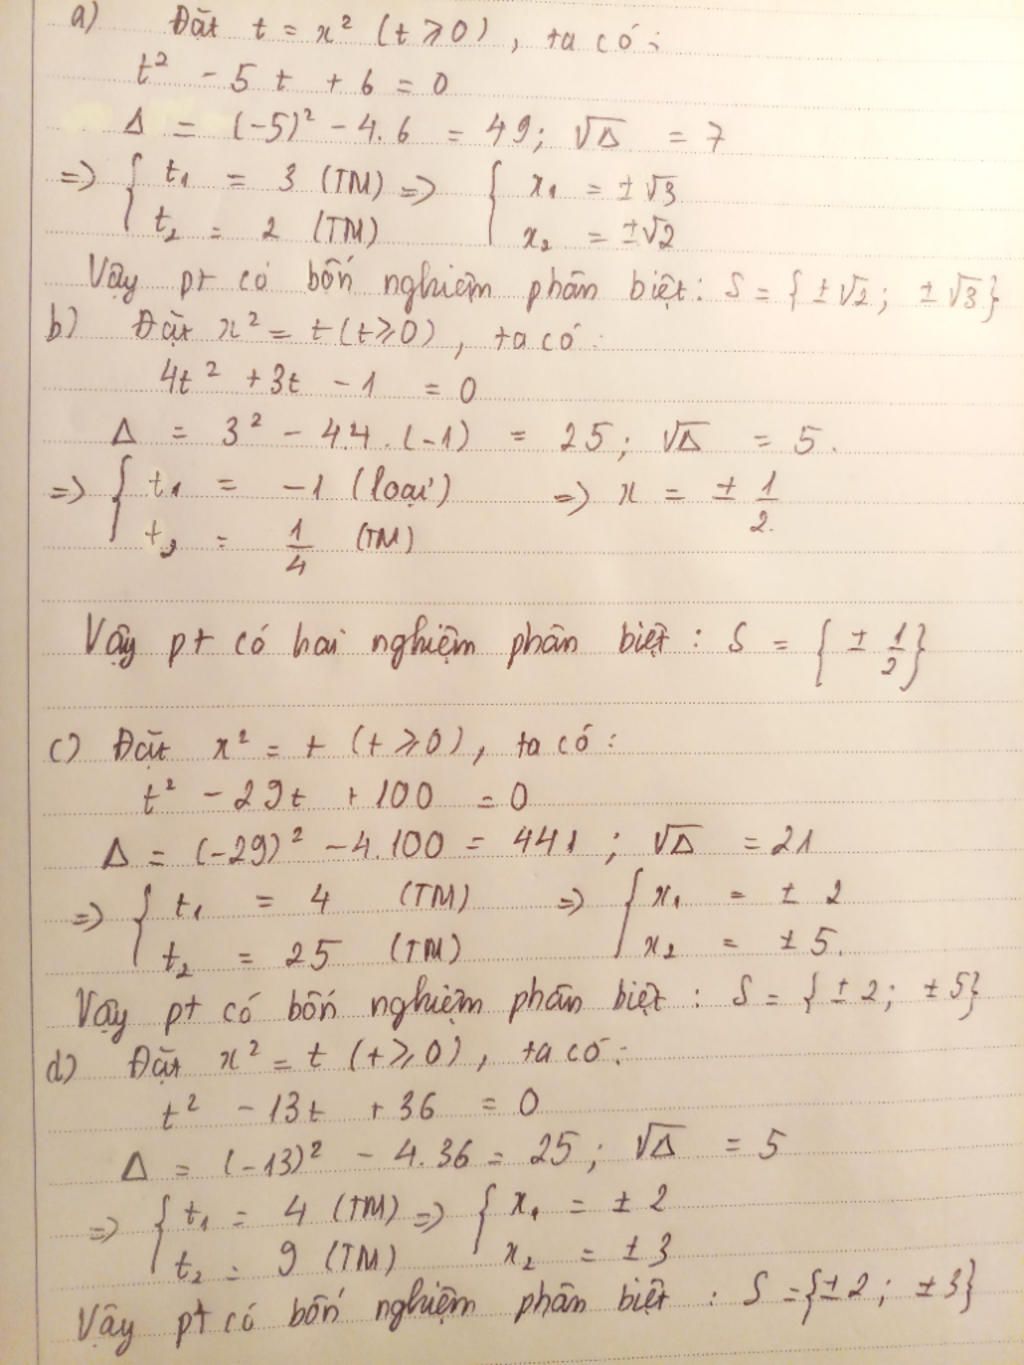 a) Đặt t = x² (t ≥ 0), ta có:
t² - 5t + 6 = 0
Δ = (-5)² - 4.6 = 49; √Δ = 7
=> { t₁ = 3 (TM) => { x₁ = ±√3
t₂ = 2 (TM) x₂ = ±√2
Vậy pt có bốn nghiệm phân biệt: S = {±√2; ±√3}
b) Đặt x² = t (t ≥ 0), ta có:
4t² + 3t - 1 = 0
Δ = 3² - 4.4.(-1) = 25; √Δ = 5.
=> { t₁ = -1 (loại) => x = ± 1/2.
t₂ = 1/4 (TM)
Vậy pt có hai nghiệm phân biệt: S = {± 1/2}
c) Đặt x² = t (t ≥ 0), ta có:
t² - 29t + 100 = 0
Δ = (-29)² - 4.100 = 441; √Δ = 21
=> { t₁ = 4 (TM) => { x₁ = ± 2
t₂ = 25 (TM) x₂ = ± 5.
Vậy pt có bốn nghiệm phân biệt: S = {± 2; ± 5}
d) Đặt x² = t (t ≥ 0), ta có:
t² - 13t + 36 = 0
Δ = (-13)² - 4.36 = 25; √Δ = 5
=> { t₁ = 4 (TM) => { x₁ = ± 2
t₂ = 9 (TM) x₂ = ± 3
Vậy pt có bốn nghiệm phân biệt: S = {± 2; ± 3}